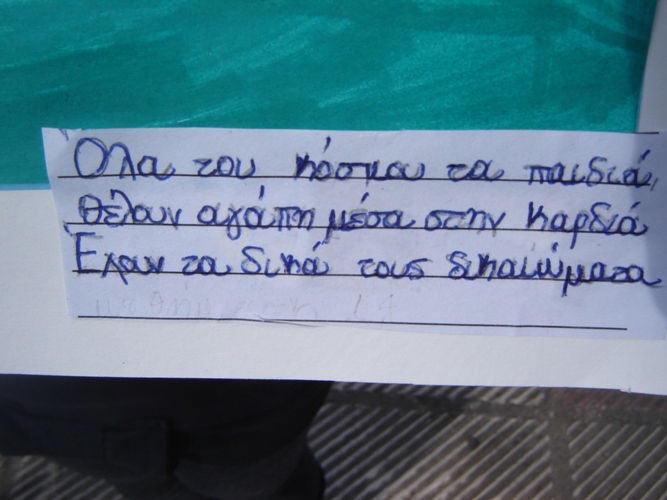 Ολα του κόσμου τα παιδιά,
θέλουν αγάπη μέσα στην καρδιά
Εχουν τα δικά τους δικαιώματα